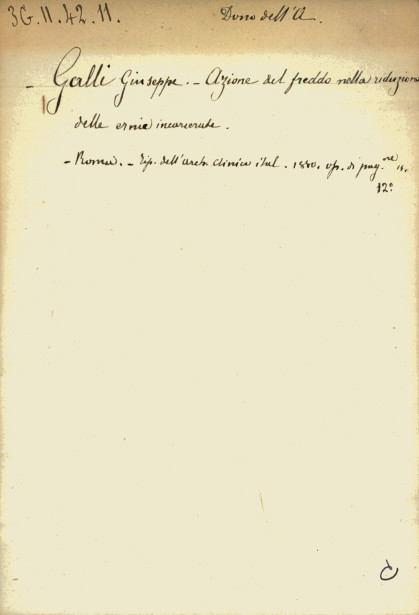 3G.11.42.11. Dono dell'A.
- Galli Giuseppe. - Azione del freddo nella riduzione
delle ernie incarcerate.
- Roma. - Tip. dell'arch. clinico ital. 1880. op. di pag.ne 14.
12º